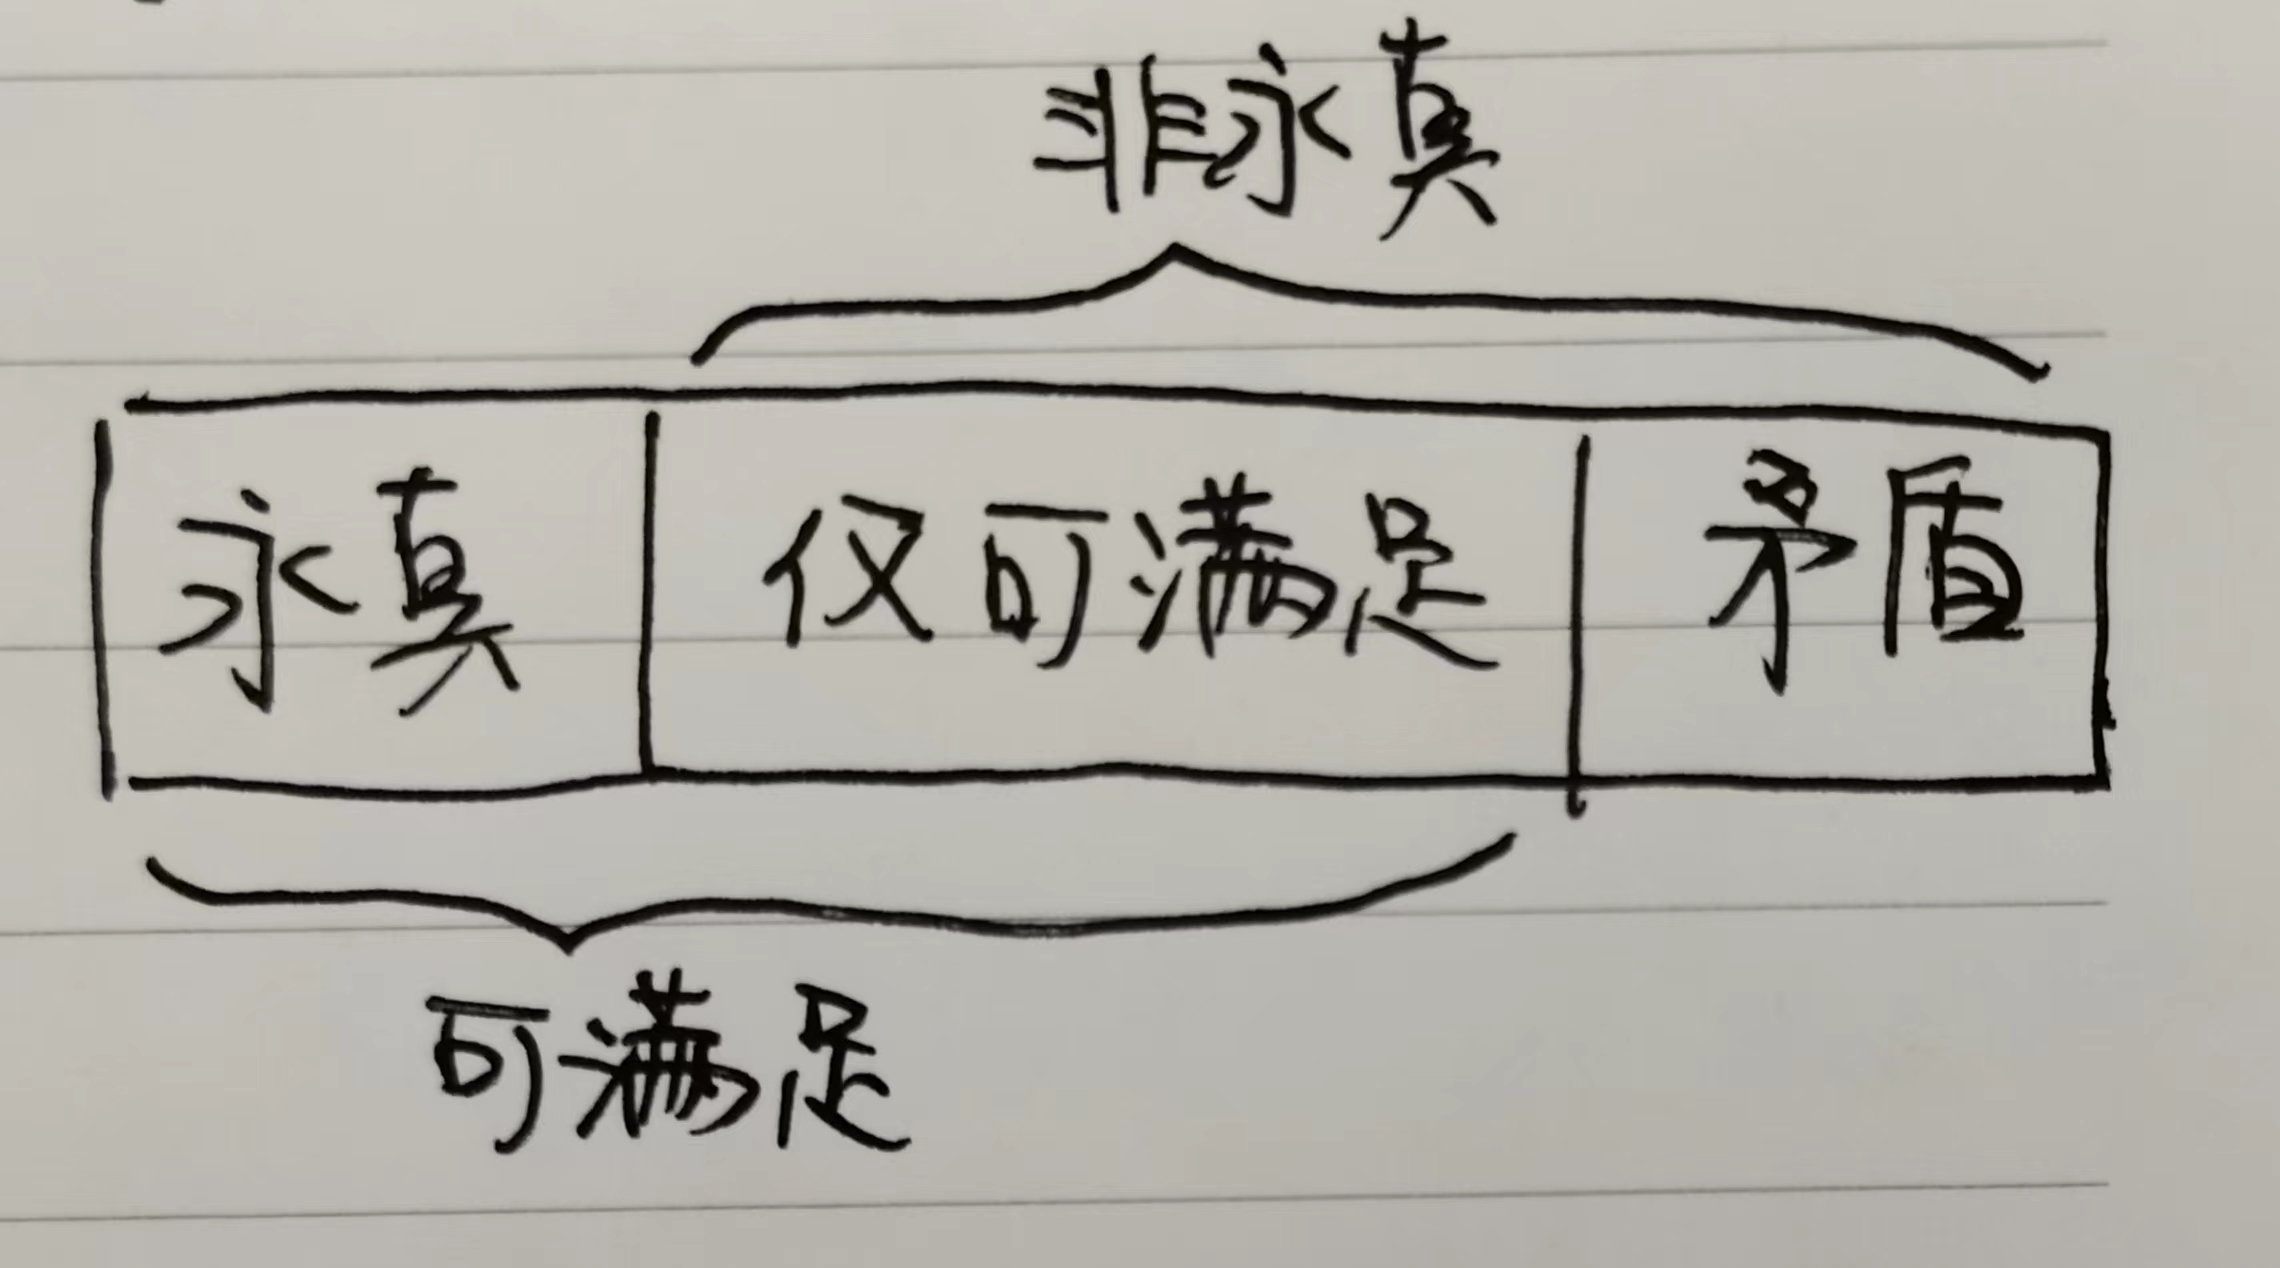 非永真
永真 仅可满足 矛盾
可满足